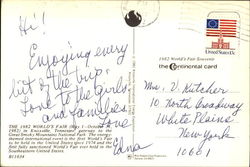 Hi!
Enjoying every
bit of the trip.
Love to the girls
and families
Love
Edna
THE 1982 WORLD'S FAIR (May 1 - October
1982) in Knoxville, Tennessee, gateway to the
Great Smoky Mountains National Park. The energy-
themed international event is the first World's Fair
to be held in the United States since 1974 and the
first fully sanctioned World's Fair ever held in the
Southeastern United States.
1982 World's Fair Souvenir
the Continental card
Mrs. V. Kutcher
10 North Broadway
White Plains
New York
10601